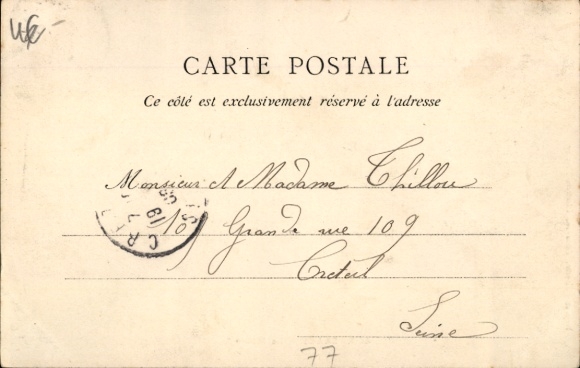 CARTE POSTALE
Ce côté est exclusivement réservé à l'adresse
Monsieur et Madame Thillou
109 Grande rue 109
Creteil
Seine
77